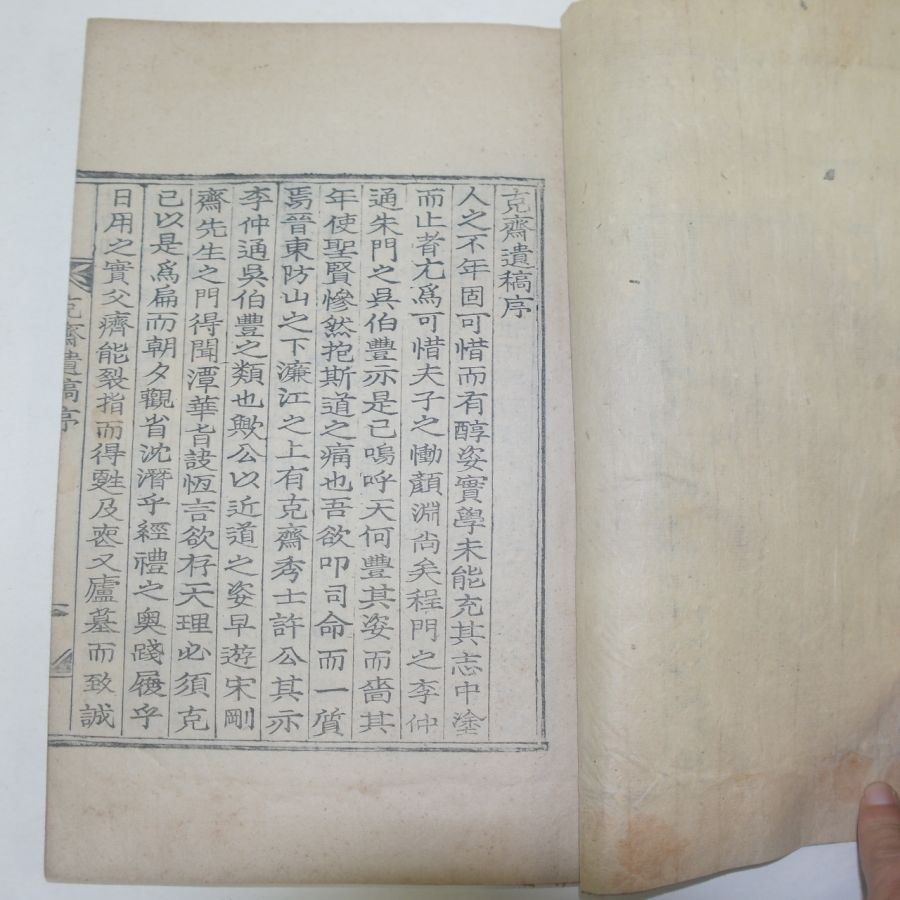 克齋遺稿序
人之不年固可惜而有醇姿實學未能充其志中塗
而止者尤爲可惜夫子之慟顏淵尙矣程門之李仲
通朱門之吳伯豐亦是已嗚呼天何豐其姿而嗇其
年使聖賢慘然抱斯道之痛也吾欲叩司命而一質
焉晉東防山之下濂江之上有克齋秀士許公其亦
李仲通吳伯豐之類也歟公以近道之姿早遊宋剛
齋先生之門得聞潭華旨訣恆言欲存天理必須克
已以是爲扁而朝夕觀省沈潛乎經禮之奧踐履乎
日用之實父癠能裂指而得甦及喪又廬墓而致誠
克齋遺稿序
一